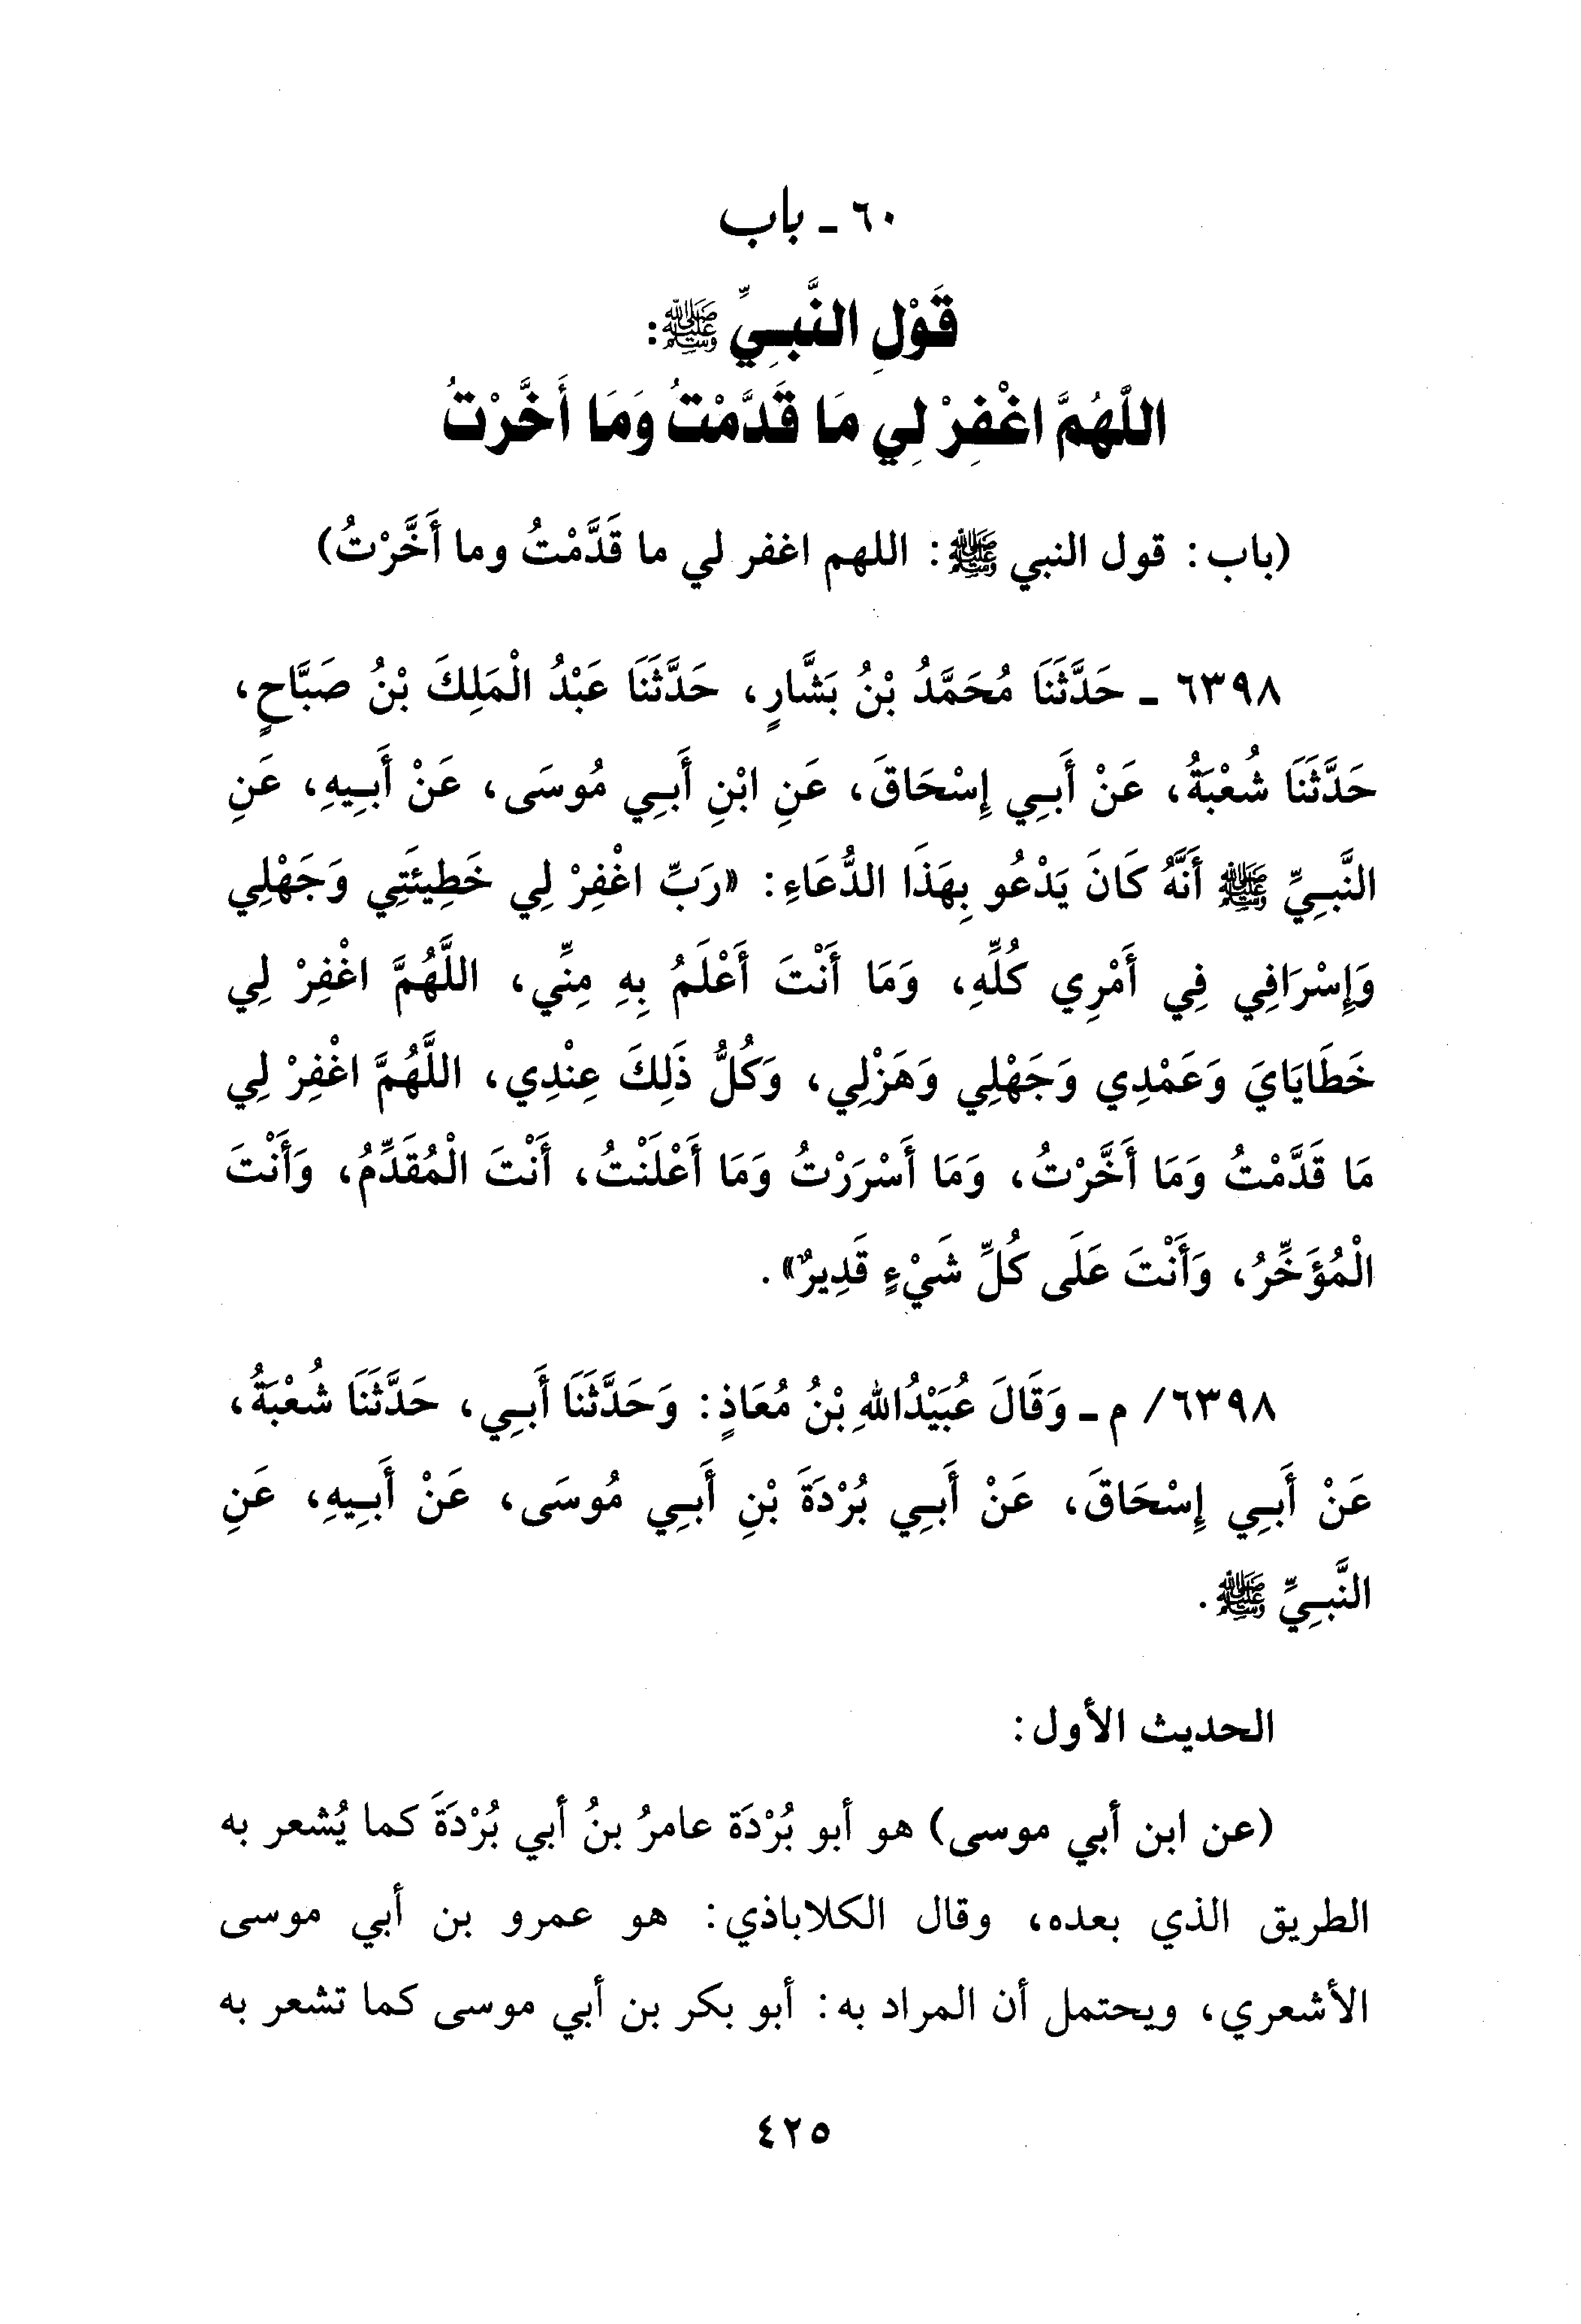 ٦٠ ـ باب
قَوْلِ النَّبِيِّ ﷺ:
اللَّهُمَّ اغْفِرْ لِي مَا قَدَّمْتُ وَمَا أَخَّرْتُ
(باب: قول النبي ﷺ: اللهم اغفر لي ما قَدَّمْتُ وما أَخَّرْتُ)
٦٣٩٨ ـ حَدَّثَنَا مُحَمَّدُ بْنُ بَشَّارٍ، حَدَّثَنَا عَبْدُ الْمَلِكَ بْنُ صَبَّاحٍ،
حَدَّثَنَا شُعْبَةُ، عَنْ أَبِي إِسْحَاقَ، عَنِ ابْنِ أَبِي مُوسَى، عَنْ أَبِيهِ، عَنِ
النَّبِيِّ ﷺ أَنَّهُ كَانَ يَدْعُو بِهَذَا الدُّعَاءِ: «رَبِّ اغْفِرْ لِي خَطِيئَتِي وَجَهْلِي
وَإِسْرَافِي فِي أَمْرِي كُلِّهِ، وَمَا أَنْتَ أَعْلَمُ بِهِ مِنِّي، اللَّهُمَّ اغْفِرْ لِي
خَطَايَايَ وَعَمْدِي وَجَهْلِي وَهَزْلِي، وَكُلُّ ذَلِكَ عِنْدِي، اللَّهُمَّ اغْفِرْ لِي
مَا قَدَّمْتُ وَمَا أَخَّرْتُ، وَمَا أَسْرَرْتُ وَمَا أَعْلَنْتُ، أَنْتَ الْمُقَدِّمُ، وَأَنْتَ
الْمُؤَخِّرُ، وَأَنْتَ عَلَى كُلِّ شَيْءٍ قَدِيرٌ».
٦٣٩٨/ م ـ وَقَالَ عُبَيْدُاللهِ بْنُ مُعَاذٍ: وَحَدَّثَنَا أَبِي، حَدَّثَنَا شُعْبَةُ،
عَنْ أَبِي إِسْحَاقَ، عَنْ أَبِي بُرْدَةَ بْنِ أَبِي مُوسَى، عَنْ أَبِيهِ، عَنِ
النَّبِيِّ ﷺ.
الحديث الأول:
(عن ابن أبي موسى) هو أبو بُرْدَة عامرُ بنُ أبي بُرْدَةَ كما يُشعر به
الطريق الذي بعده، وقال الكلاباذي: هو عمرو بن أبي موسى
الأشعري، ويحتمل أن المراد به: أبو بكر بن أبي موسى كما تشعر به
٤٢٥